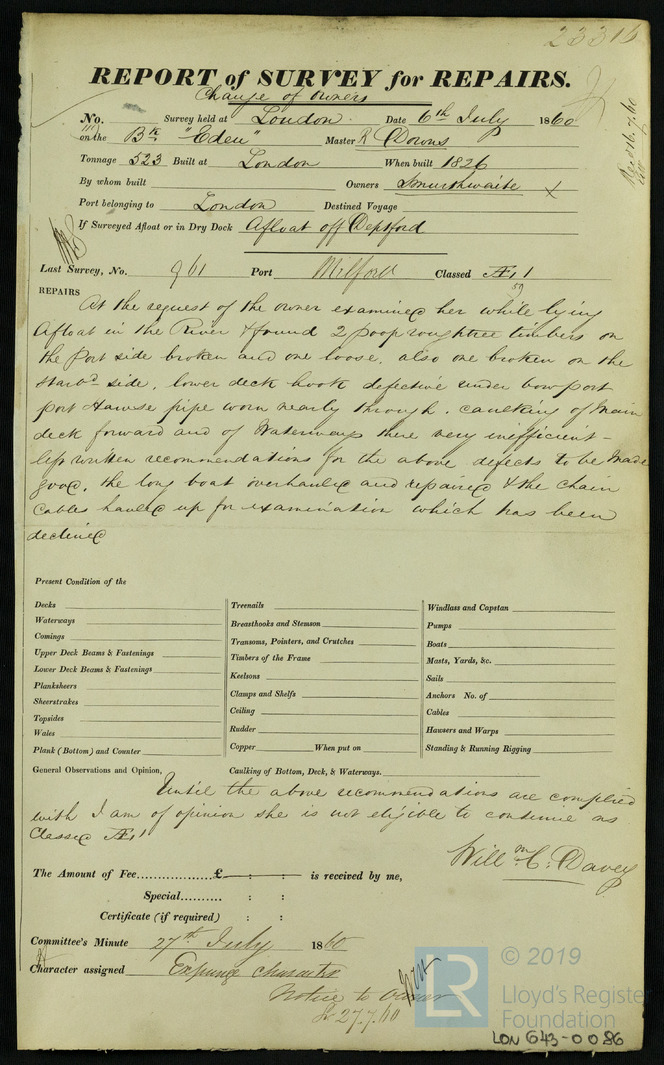 23316
REPORT of SURVEY for REPAIRS.
Change of Owners
No. Survey held at London Date 6th July 1860
on the Bk "Eden" Master R Downs
Tonnage 523 Built at London When built 1826
By whom built Owners Smurthwaite X
Port belonging to London Destined Voyage
If Surveyed Afloat or in Dry Dock Afloat off Deptford
Last Survey, No. 961 Port Milford Classed Æ1
59
REPAIRS
At the request of the owner examined her while lying
Afloat in the River & found 2 poop roughtree timbers on
the Port side broken and one loose, also one broken on the
Starbd side, lower deck hook defective under bow port
port Hawse pipe worn nearly through. caulking of Main
deck forward and of Waterways there very inefficient –
left written recommendations for the above defects to be made
good, the long boat overhauled and repaired & the chain
cables hauled up for examination which has been
declined
Present Condition of the
Decks Treenails Windlass and Capstan
Waterways Breasthooks and Stemson Pumps
Comings Transoms, Pointers, and Crutches Boats
Upper Deck Beams & Fastenings Timbers of the Frame Masts, Yards, &c.
Lower Deck Beams & Fastenings Keelsons Sails
Planksheers Clamps and Shelfs Anchors No. of
Sheerstrakes Ceiling Cables
Topsides Rudder Hawsers and Warps
Wales Copper When put on Standing & Running Rigging
Plank (Bottom) and Counter
General Observations and Opinion, Caulking of Bottom, Deck, & Waterways.
Until the above recommendations are complied
with I am of opinion she is not eligible to continue as
Classed Æ1
Willm C: Davey
The Amount of Fee £ : : is received by me,
Special : :
Certificate (if required) : :
Committee's Minute 27th July 1860
Character assigned Expunge character
Notice to Owner
27.7.60
© 2019
LR Lloyd's Register
Foundation
LON 643-0086